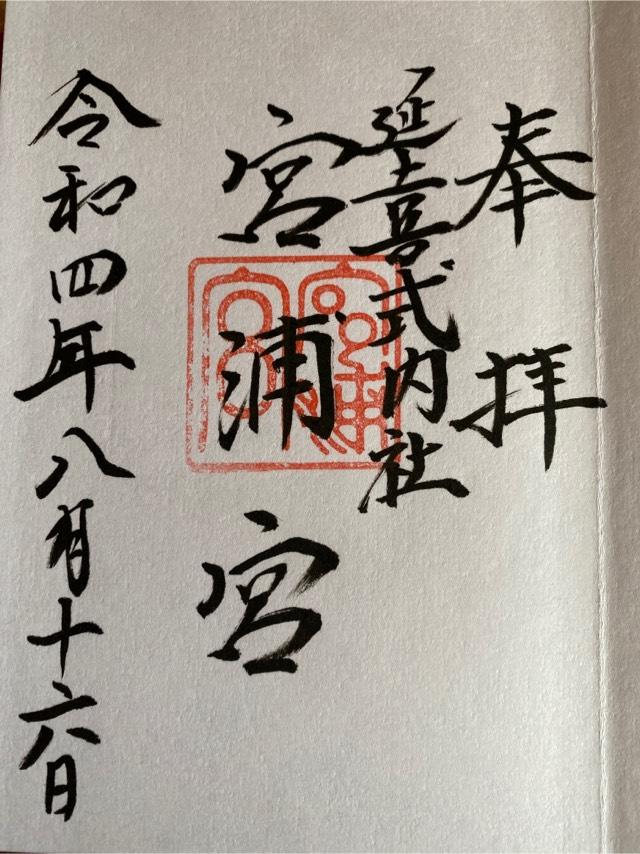 奉拝
延喜式内社
宮浦宮
令和四年八月十六日